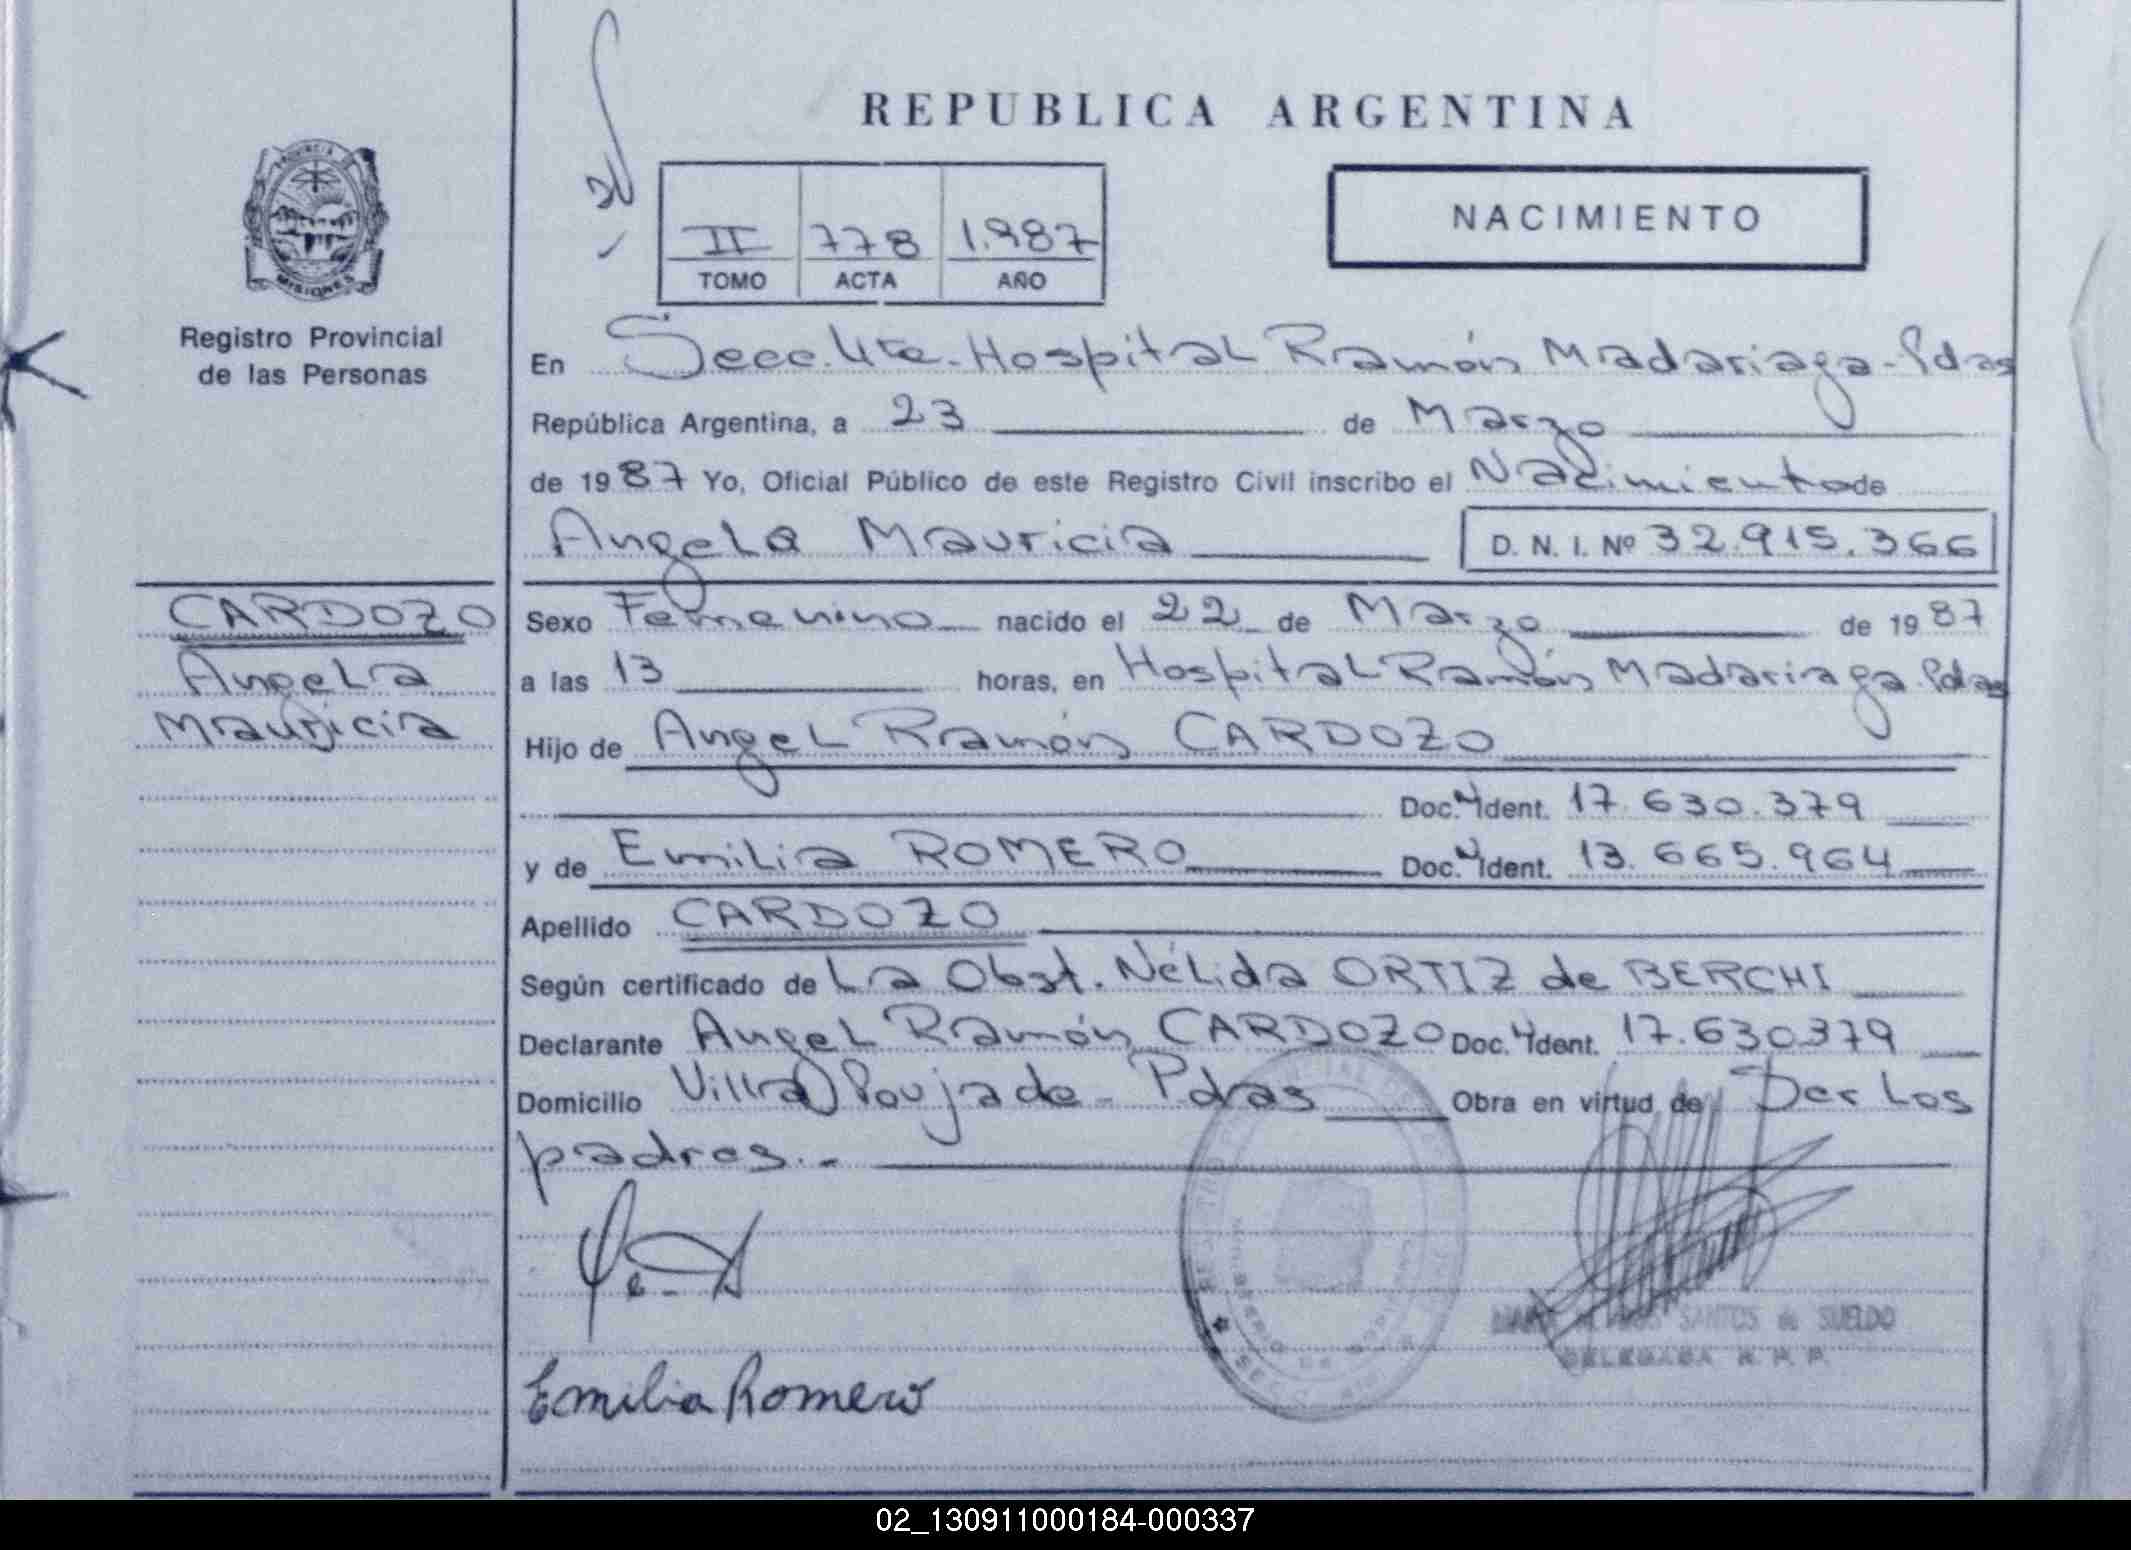 REPUBLICA ARGENTINA
PROVINCIA DE
MISIONES
Registro Provincial
de las Personas
II 778 1.987
TOMO ACTA AÑO
NACIMIENTO
En Secc. 4ta. Hospital Ramón Madariaga - Pdas
República Argentina, a 23 de Marzo
de 1987 Yo, Oficial Público de este Registro Civil inscribo el Nacimiento de
Angela Mauricia D. N. I. Nº 32.915.366
CARDOZO
Angela
Mauricia
Sexo Femenino nacido el 22 de Marzo de 1987
a las 13 horas, en Hospital Ramón Madariaga. Pdas
Hijo de Angel Ramón CARDOZO
Doc. Ident. 17.630.379
y de Emilia ROMERO Doc. Ident. 13.665.964
Apellido CARDOZO
Según certificado de La Obst. Nélida ORTIZ de BERCHI
Declarante Angel Ramón CARDOZO Doc. Ident. 17.630379
Domicilio Villa Poujade - Pdas Obra en virtud de Ser Los
padres.-
SANTOS de SUELDO
DELEGADA R. P. P.
Emilia Romero
02_130911000184-000337